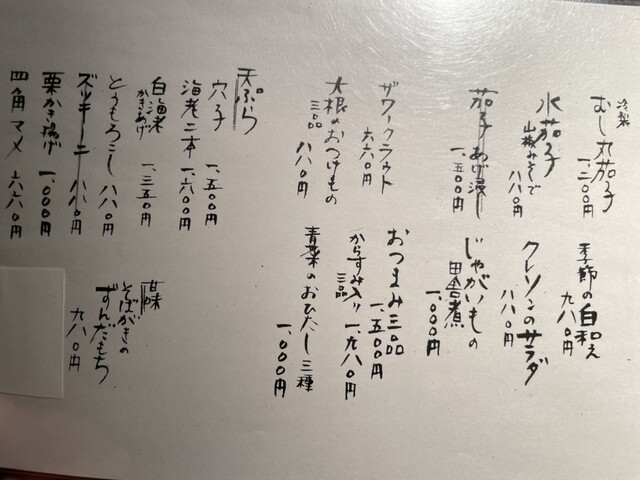 冷製
むし丸茄子
一、二〇〇円
水茄子
山椒みそで
八八〇円
茄子あげ浸し
一、五〇〇円
ザワークラウト
六六〇円
大根のおつけもの
三品
八八〇円
季節の白和え
九八〇円
クレソンのサラダ
八八〇円
じゃがいもの
田舎煮
一、〇〇〇円
おつまみ三品
一、五〇〇円
からすみ入り
三品
一、九八〇円
青菜のおひたし三種
一、〇〇〇円
天ぷら
穴子
一、五〇〇円
海老二本
一、六〇〇円
白海老
かきあげ
一、三五〇円
とうもろこし
八八〇円
ズッキーニ
八八〇円
栗かき揚げ
一、〇〇〇円
四角マメ
六六〇円
甘味
そばがきの
ずんだもち
九八〇円